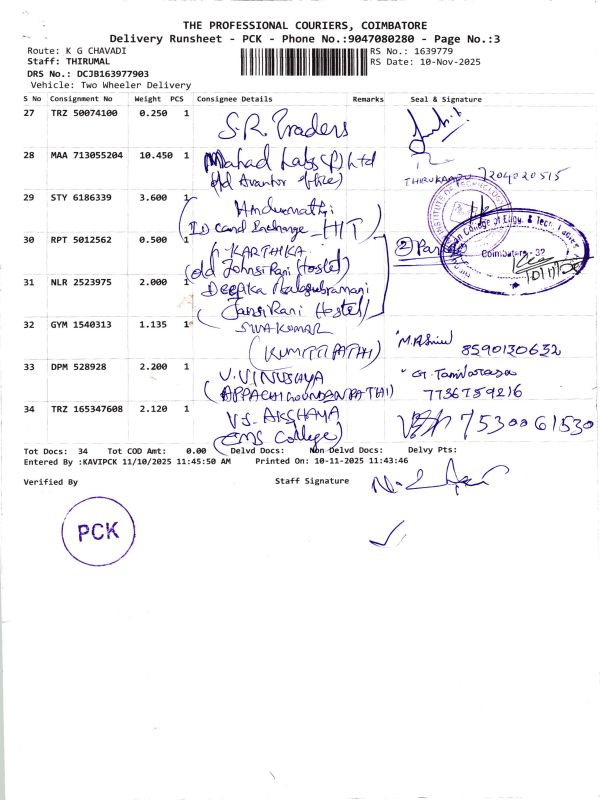 THE PROFESSIONAL COURIERS, COIMBATORE
Delivery Runsheet - PCK - Phone No.:9047080280 - Page No.:3
Route: K G CHAVADI RS No.: 1639779
Staff: THIRUMAL RS Date: 10-Nov-2025
DRS No.: DCJB163977903
Vehicle: Two Wheeler Delivery
S No Consignment No Weight PCS Consignee Details Remarks Seal & Signature
27 TRZ 50074100 0.250 1 S.R. Traders
28 MAA 713055204 10.450 1 Mahad Labs (P) Ltd
(old Avantor office) THIRUKAADU 7204020515
29 STY 6186339 3.600 1 Hindusthan
(ID Card Exchange - HIT)
30 RPT 5012562 0.500 1 KARTHIKA
(old Jhansi Rani Hostel)
31 NLR 2523975 2.000 1 Deepika Balasubramani
(Jansi Rani Hostel)
Coimbatore - 32
10/11/25
32 GYM 1540313 1.135 1 SIVAKUMAR
(KUMITTIPATHI) 8590130632
33 DPM 528928 2.200 1 V. VINUSHYA G. Tamilarasa
(APPACHIGOUNDANPATHI) 7736759216
34 TRZ 165347608 2.120 1 V.S. AKSHAYA 7530061530
(CMS College)
Tot Docs: 34 Tot COD Amt: 0.00 Delvd Docs: Non Delvd Docs: Delvy Pts:
Entered By :KAVIPCK 11/10/2025 11:45:50 AM Printed On: 10-11-2025 11:43:46
Verified By Staff Signature
PCK